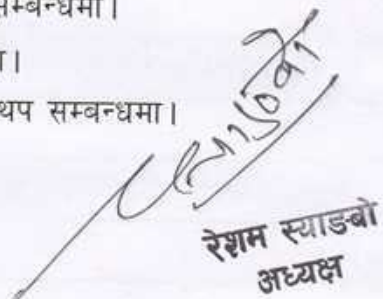 सम्बन्धमा।
ा।
थप सम्बन्धमा।
स्याङबो
रेशम स्याङबो
अध्यक्ष